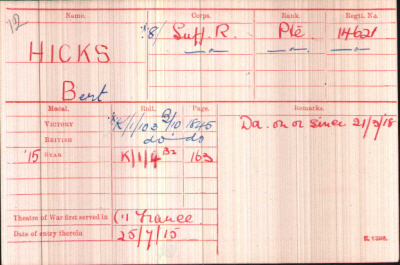 Name. Corps. Rank. Regtl. No.
HICKS 8/ Suff. R. Pte 14621
Bert
Medal. Roll. Page. Remarks.
VICTORY K/1/103 B/10 1845 Da. on or since 21/3/18
BRITISH do do
'15 STAR K/1/4 B2 163
Theatre of War first served in (1) France
Date of entry therein 25/7/15
K. 1380.